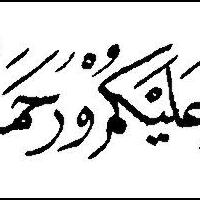 عَلَيْكُمْ وَرَحمَ